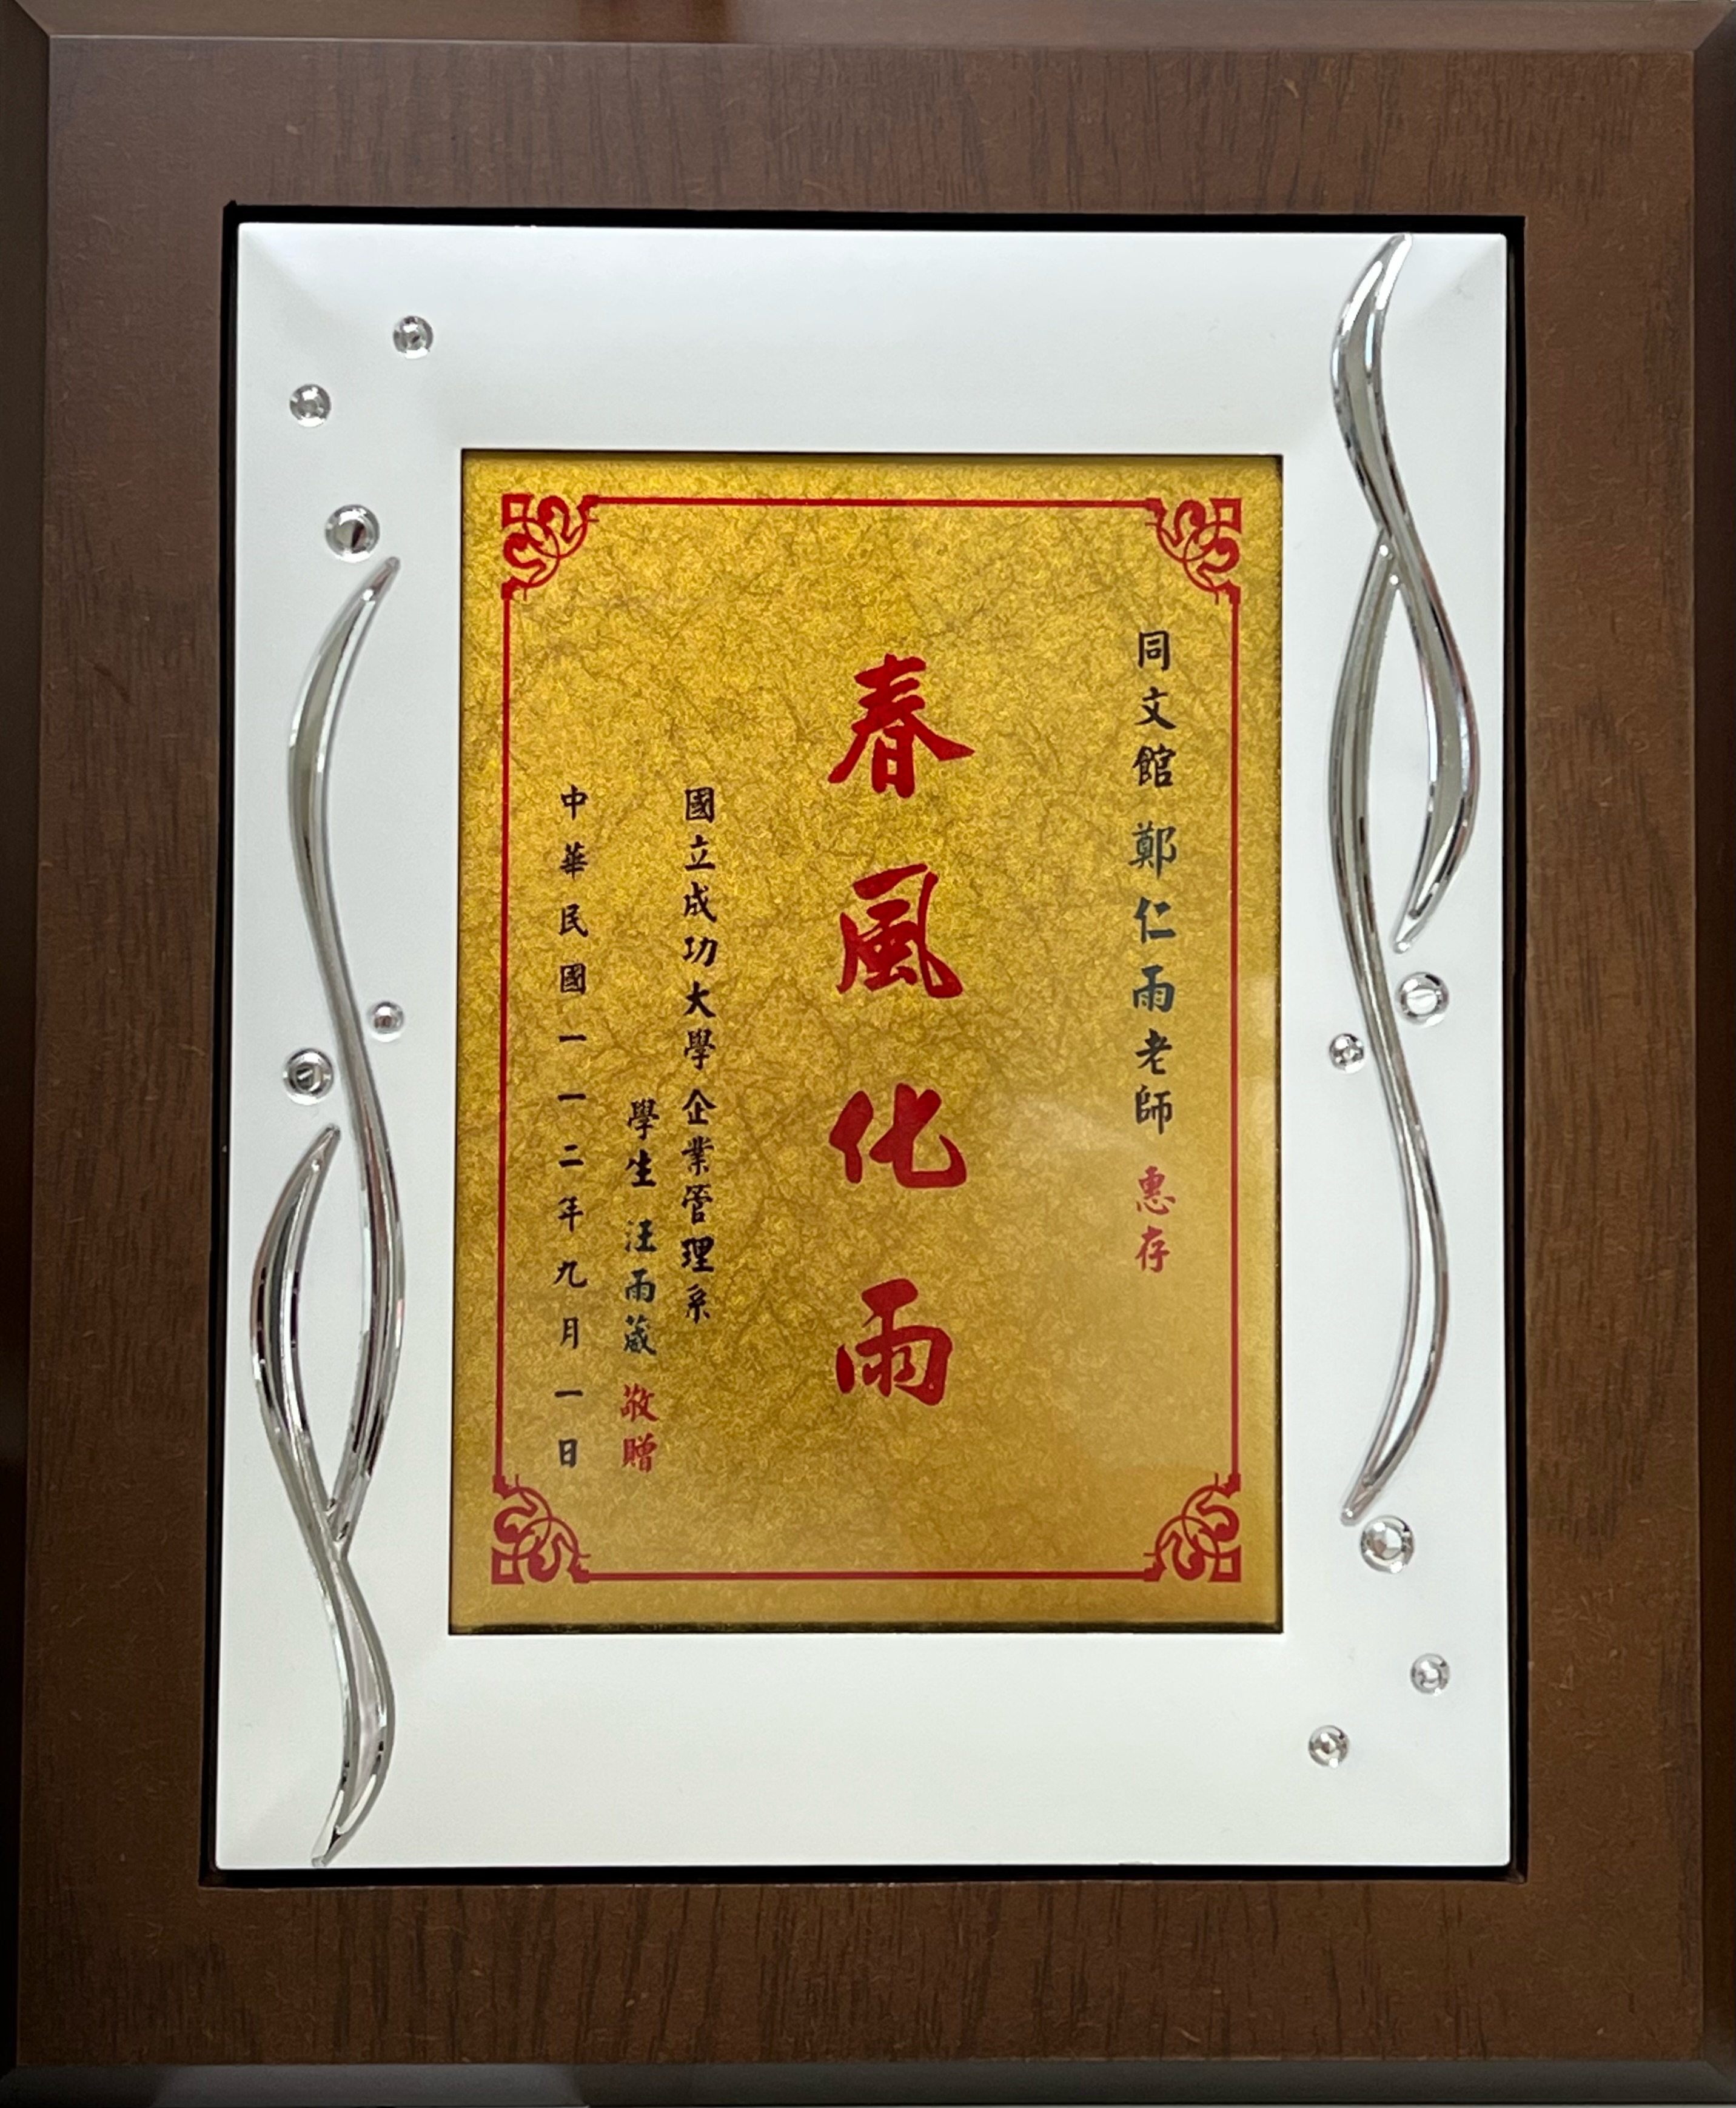 同文館 鄭仁雨老師 惠存
春風化雨
國立成功大學企業管理系
學生 汪雨葳 敬贈
中華民國一一二年九月一日